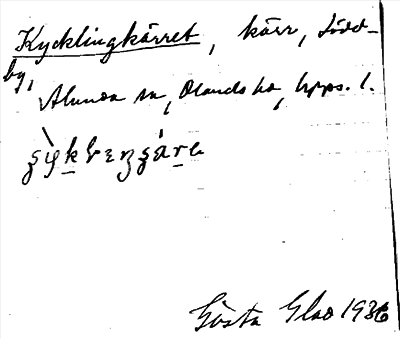 Kycklingkärret, kärr, Söd-
by,
Alunda sn, Olands hd, Upps. l.
Gösta Glad 1936